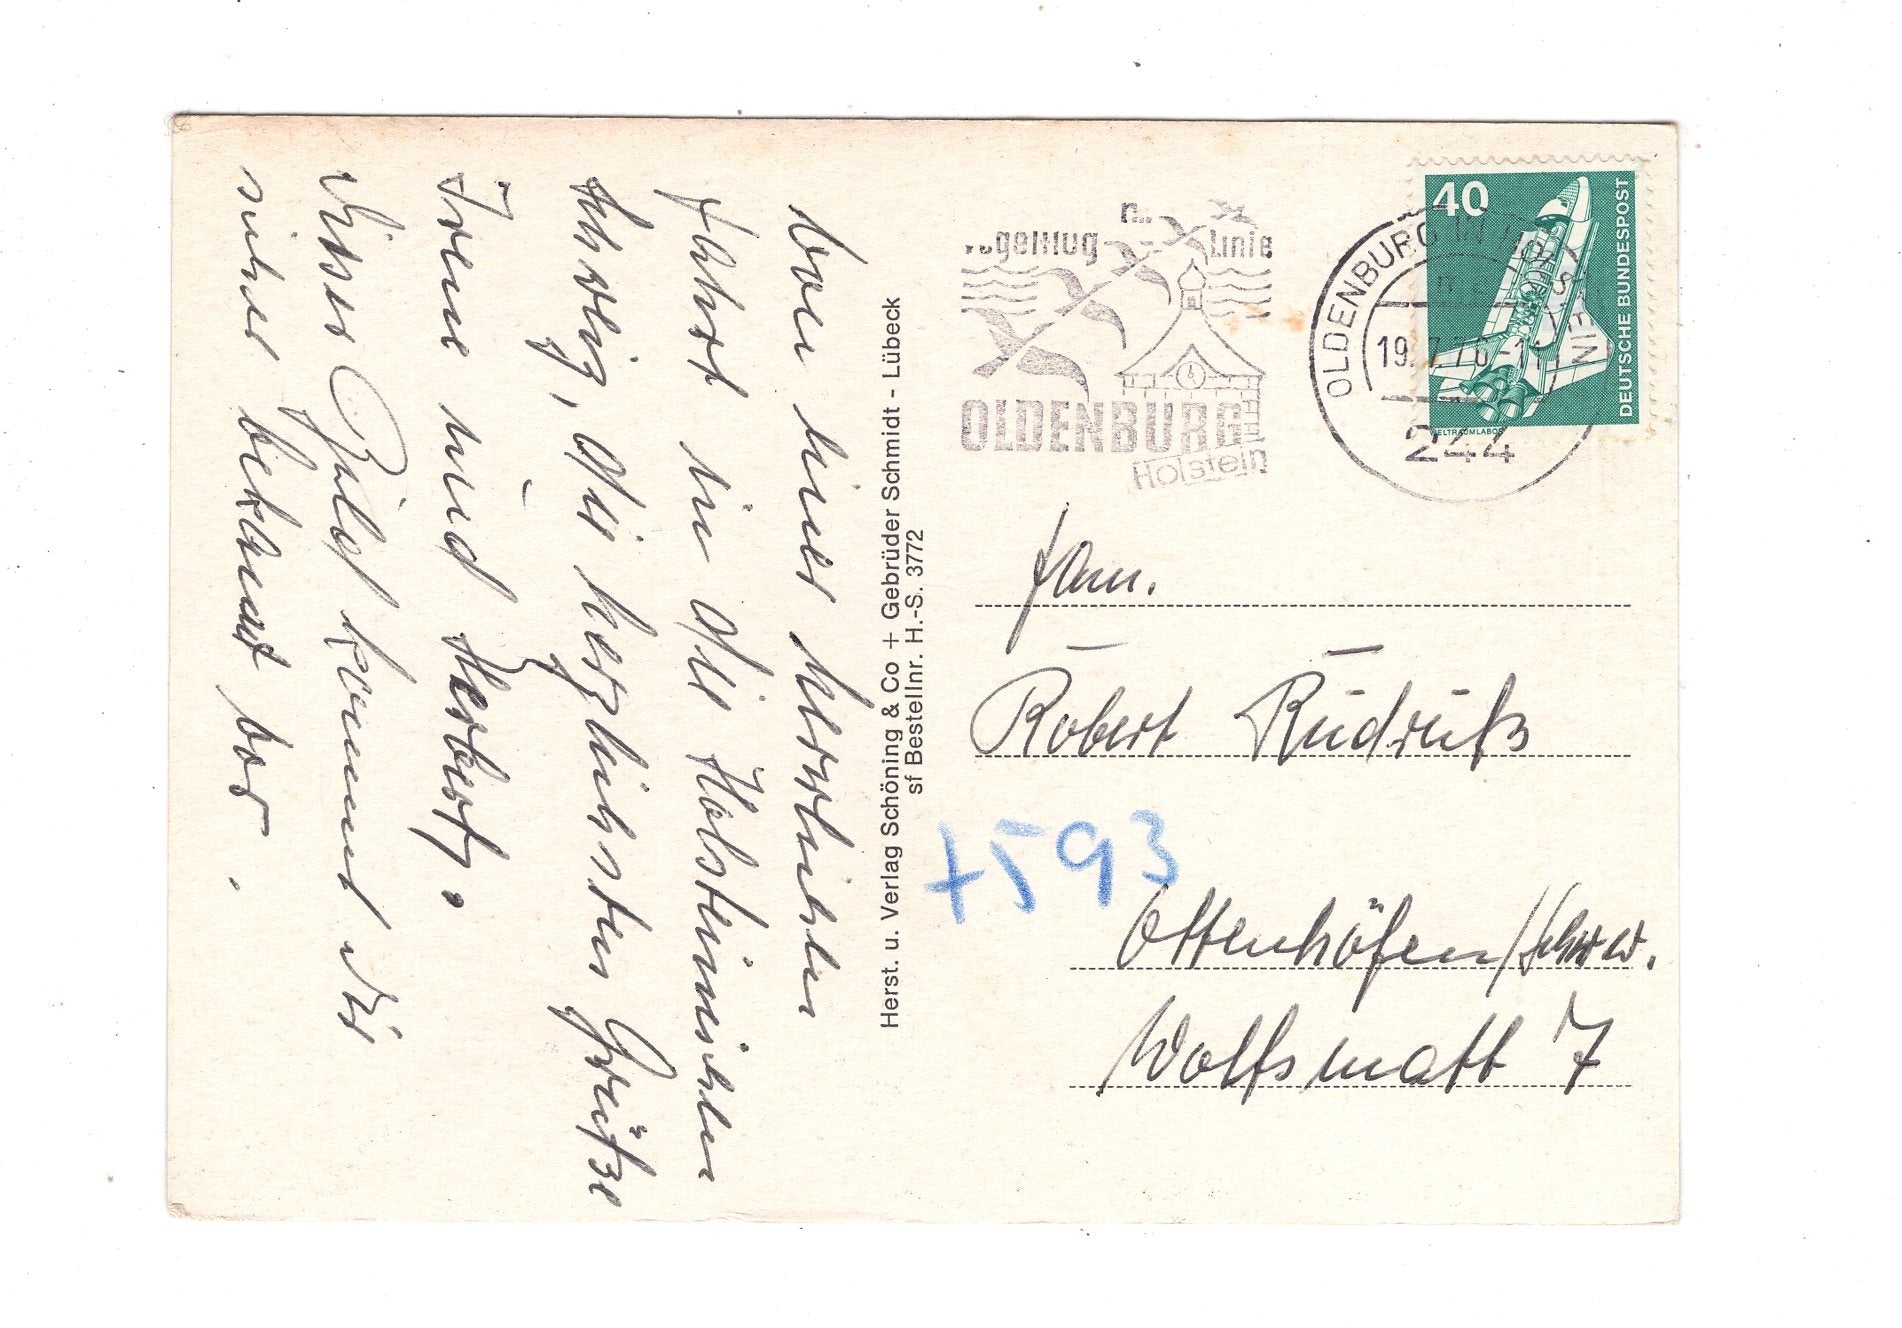 Von einer Herrlichen
Fahrt in die Holsteinischen
Schweiz, die herzlichsten Grüße
Irene und Herbert.
Dieses Bild kommt Dir
sicher bekannt vor.
Herst. u. Verlag Schöning & Co + Gebrüder Schmidt - Lübeck
sf Bestellnr. H.-S. 3772
Vogelfluglinie
OLDENBURG
Holstein
OLDENBURG IN HOLSTEIN
19.7.76-11
244
40
DEUTSCHE BUNDESPOST
WELTRAUMLABOR
Fam.
Robert
+593
Ottenhöfen/Schww.
Wolfsmatt 7